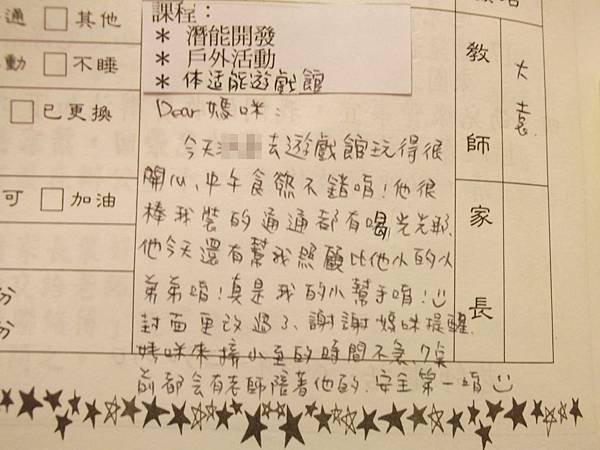 課程：
* 潛能開發
* 戶外活動
* 体适能遊戲館
通 □ 其他
動 □ 不睡
□ 已更換
可 □ 加油
份
份
教師
家長
Dear 媽咪：
今天 去遊戲館玩得很
開心、中午食慾不錯唷！他很
棒我裝的通通都有喝光光耶
他今天還有幫我照顧比他小的小
弟弟唷！真是我的小幫手唷！
封面更改過了、謝謝媽咪提醒.
媽咪來接小 的時間不急、7点
前都会有老師陪著他的.安全第一唷